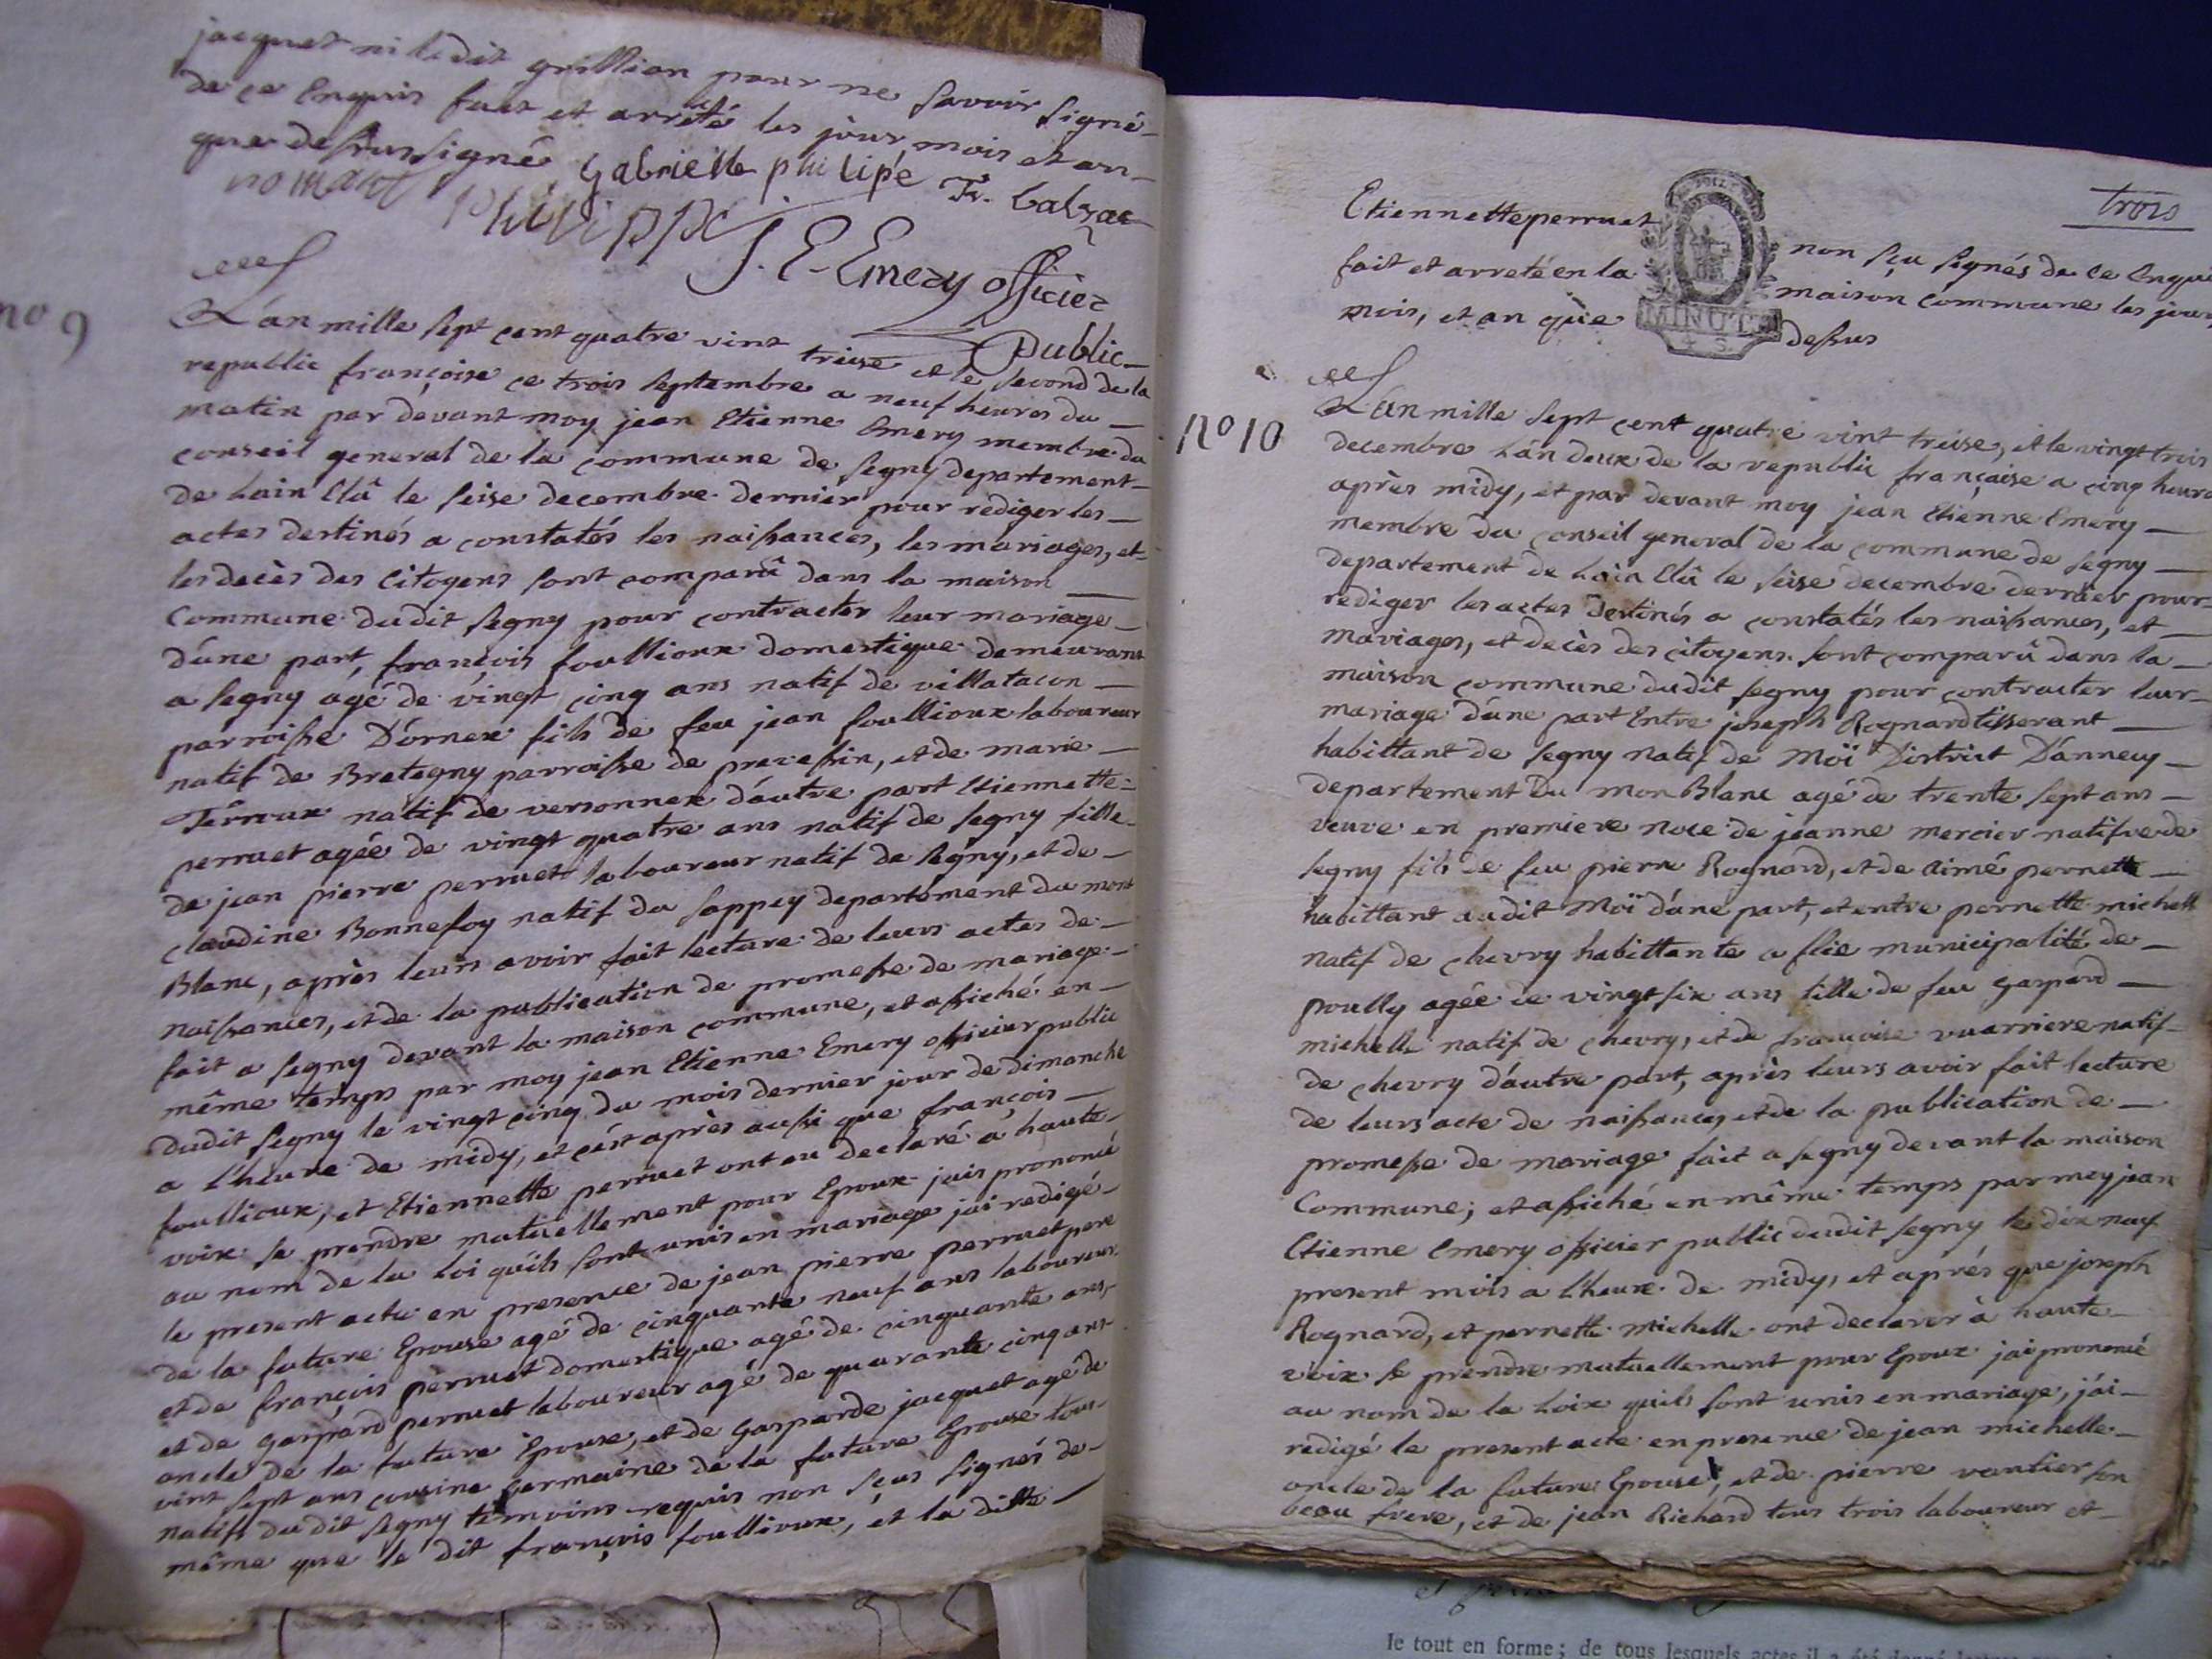 jacquet ni ledit grillion pour ne savoir signé
de ce Enquis fait et arrêté les jour, mois et an
que dessus signé Gabrielle philipé Fr. balzac
philippe
J. E. Emery officier
Public
no 9
L'an mille sept cent quatre vint treise et le second de la
republic françoise ce trois septembre a neuf heures du
matin par devant moy jean Etienne Emery membre du
conseil general de la commune de segny departement
de Lain Elû le seise decembre dernier pour rediger les
actes destinés a constatés les naissances, les mariages, et
les decès des citoyens sont comparû dans la maison
Commune dudit segny pour contracter leur mariage
d'une part, françois foullioux domestique demeurant
a segny agé de vingt cinq ans natif de villatacon
parroisse D'ornex fils de feu jean foullioux laboureur
natif de Bretegny parroisse de prevessin, et de marie
natif de versonnex d'autre part Etiennette
perruet agée de vingt quatre ans natif de segny fille
de jean pierre perruet laboureur natif de segny, et de
claudine Bonnefoy natif du sappey departement du mont
Blanc, après leurs avoir fait lecture de leurs actes de
naissances, et de la publication de promesse de mariage
fait a segny devant la maison commune, et affiché en
même temps par moy jean Etienne Emery officier public
dudit segny le vingt cinq du mois dernier jour de dimanche
a l'heure de midy, et c'est après aussi que françois
foullioux, et Etiennette perruet ont eu declaré a haute
voix se prendre mutuellement pour Epoux jais prononcé
au nom de la Loi quils sont unis en mariage jai redigé
le present acte en presence de jean pierre perruet pere
de la future Epouse agé de cinquante neuf ans laboureur
et de françois perruet domestique agé de cinquante ans,
et de gaspard perruet laboureur agé de quarante cinq ans
oncle de la future Epouse, et de gasparde jacquet agé de
vint sept ans cousine germaine de la future Epouse tous
natifs du dit segny temoins requis non sçus signés de
même que le dit françois foullioux, et la ditte
trois
Etiennette perruet non sçu signés de ce Enquis
fait et arreté en la maison commune les jour
mois, et an que dessus
MINUT.
no 10
L'an mille sept cent quatre vint treise, et le vingt trois
decembre L'an deux de la republic française a cinq heure
après midy, et par devant moy jean Etienne Emery
membre du conseil general de la commune de segny
departement de Lain Elû le seise decembre dernier pour
rediger les actes destinés a constatés les naissances, et
mariages, et decès des citoyens sont comparû dans la
maison commune dudit segny pour contracter leur
mariage d'une part Entre joseph Rognard tisserant
habittant de segny natif de Moï District D'annecy
departement du mon Blanc agé de trente sept ans
veuve en premiere noce de jeanne mercier natifve de
segny fils de feu pierre Rognard, et de aimé pernette
habittant audit Moï d'une part, et entre pernette michelle
natif de chevry habittante a flie municipalité de
poully agée de vingt six ans fille de feu gaspard
michelle natif de chevry, et de françoise vuarriere natif
de chevry d'autre part, après leurs avoir fait lecture
de leurs acte de naissances, et de la publication de
promesse de mariage fait a segny devant la maison
Commune; et affiché en même temps par moy jean
Etienne Emery officier public dudit segny le dix neuf
present mois a l'heure de midy, et après que joseph
Rognard, et pernette michelle ont declarer à haute
voix se prendre mutuellement pour Epoux jai prononcé
au nom de la Loix quils sont unis en mariage, j'ai
redigé le present acte en presence de jean michelle
oncle de la future Epouse, et de pierre vantier son
beau frere, et de jean Richard tous trois laboureur et
le tout en forme; de tous lesquels actes il a été donné